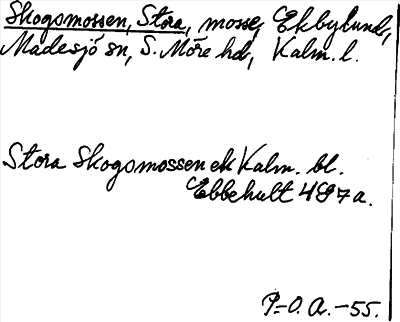 Skogsmossen, Stora, mosse, Ekbylund,
Madesjö sn, S. Möre hd, Kalm. l.
Stora Skogsmossen ek Kalm. bl.
Ebbehult 4G7a.
P-O.A.-55.